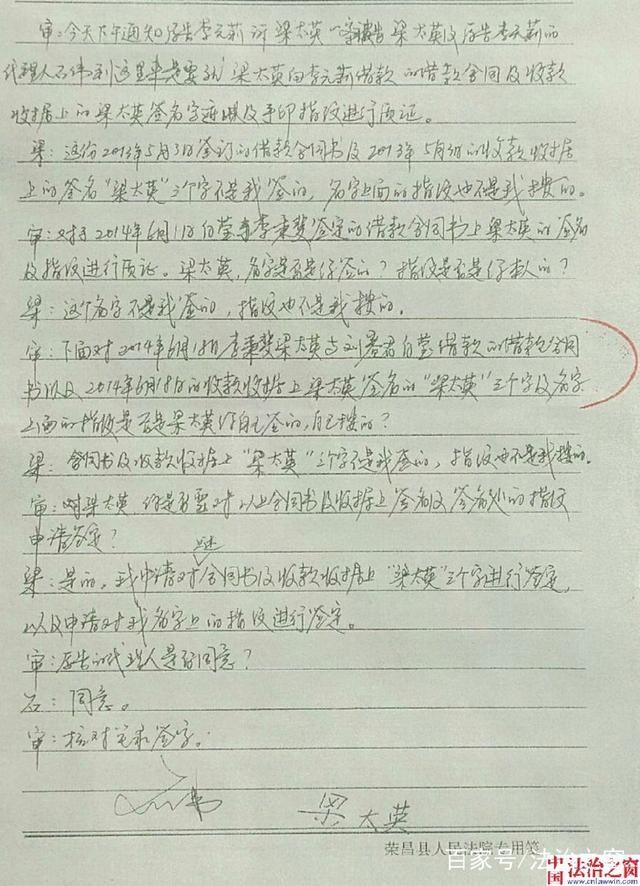 审:今天下午通知原告李元莉诉梁太英一案被告梁太英及原告李元莉的
代理人石伟到这里来是要就梁太英向李元莉借款的借款合同及收款
收据上的梁太英签名字迹以及手印指纹进行质证。
梁:这份2013年5月3日签订的借款合同书及2013年5月3日的收款收据
上的签名"梁太英"三个字不是我签的,名字上面的指纹也不是我捺的。
审:对于2014年6月1日李秉斐签定的借款合同书上梁太英的签名
及指纹进行质证。梁太英,名字是否是你签的?指纹是否是你本人的?
梁:这个名字不是我签的,指纹也不是我捺的。
审:下面对2014年6月18日李秉斐梁太英与借款的借款合同
书以及2014年6月18日的收款收据上梁太英签名的"梁太英"三个字及名字
上面的指纹是否是梁太英你自己签的,自己捺的?
梁:合同书及收款收据上"梁太英"三个字不是我签的,指纹也不是我捺的。
审:梁太英你是否要对以上合同书及收据上签名及签名处的指纹
申请鉴定?
梁:是的,我申请对上述合同书及收款收据上"梁太英"三个字进行鉴定,
以及申请对我名字上的指纹进行鉴定。
审:原告的代理人是否同意?
石:同意。
审:核对笔录签字。
石伟 梁太英
荣昌县人民法院专用笺
百家号/法治之窗
中国法治之窗
www.cnlawwin.com